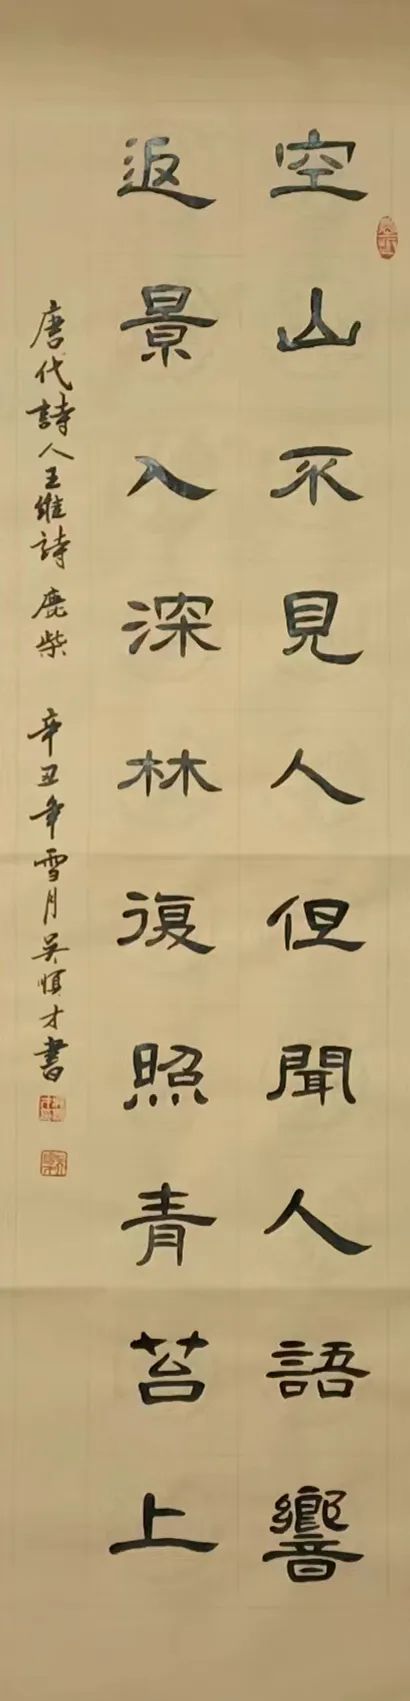 空山不見人但聞人語響
返景入深林復照青苔上
唐代詩人王維詩 鹿柴 辛丑年雪月吴慎才書